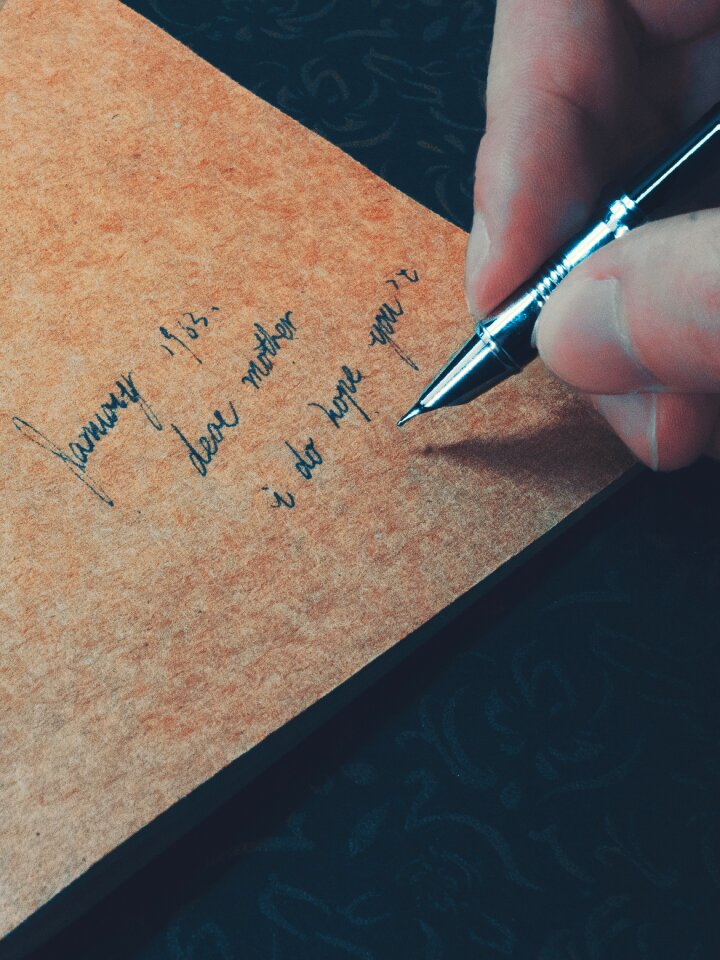 January 1963.
dear mother
i do hope you'r